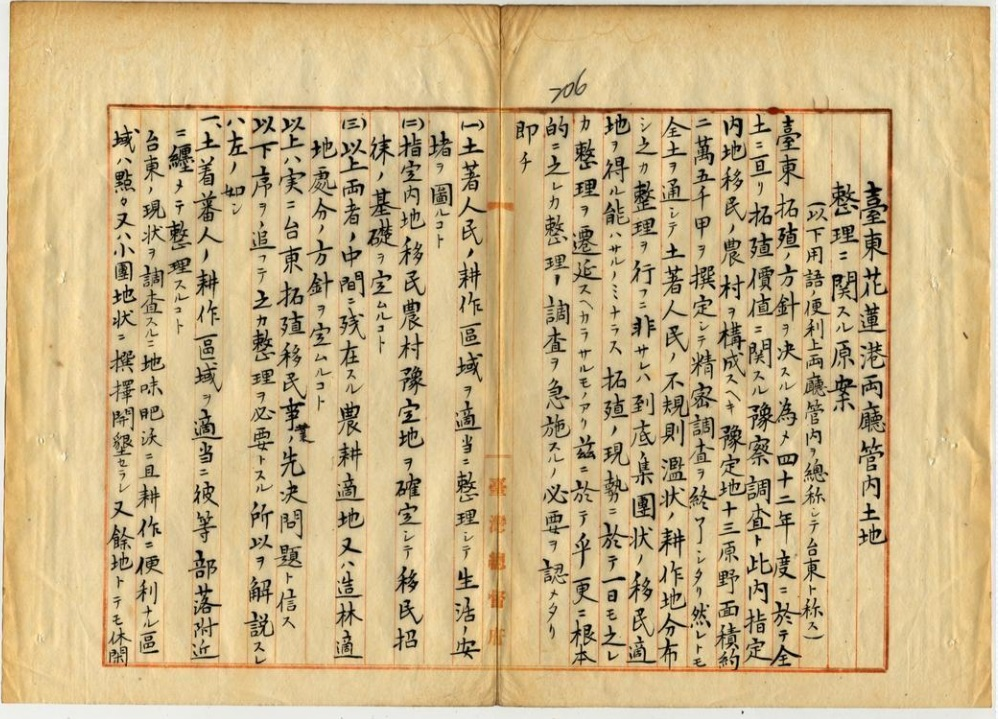 706
臺東花蓮港両廳管内土地
整理ニ関スル原案
(以下用語ノ便利上両廳管内ヲ總称シテ台東ト称ス)
臺東拓殖ノ方針ヲ決スル為メ四十二年度ニ於テ全
土ニ亘リ拓殖價値ニ関スル豫察調査ト此内指定
内地移民ノ農村ヲ構成スヘキ豫定地十三原野面積約
二萬五千甲ヲ撰定シテ精密調査ヲ終了シタリ然レトモ
全土ヲ通シテ土著人民ノ不規則濫状ノ耕作地分布
シ之カ整理ヲ行フニ非サレハ到底集團状ノ移民適
地ヲ得ル能ハサルノミナラス拓殖ノ現勢ニ於テ一日モ之レ
カ整理ヲ遷延スヘカラサルモノアリ茲ニ於テ乎更ニ根本
的ニ之レカ整理ノ調査ヲ急施スルノ必要ヲ認メタリ
即チ
臺灣總督府
(一)土著人民ノ耕作區域ヲ適当ニ整理シテ生活ノ安
堵ヲ圖ルコト
(二)指定内地移民農村豫定地ヲ確定シテ移民招
徠ノ基礎ヲ定ムルコト
(三)以上両者ノ中間ニ残在スル農耕適地又ハ造林適
地處分ノ方針ヲ定ムルコト
以上ハ実ニ台東拓殖移民事業ノ先決問題ト信ス
以下序ヲ追フテ之カ整理ヲ必要トスル所以ヲ解説スレ
ハ左ノ如シ
一、土着蕃人ノ耕作區域ヲ適当ニ彼等部落附近
ニ纏メテ整理スルコト
台東ノ現状ヲ調査スルニ地味肥沃ニ且耕作ニ便利ナル區
域ハ點々又ハ小團地状ニ撰擇開墾セラレ又餘地トテモ休閑